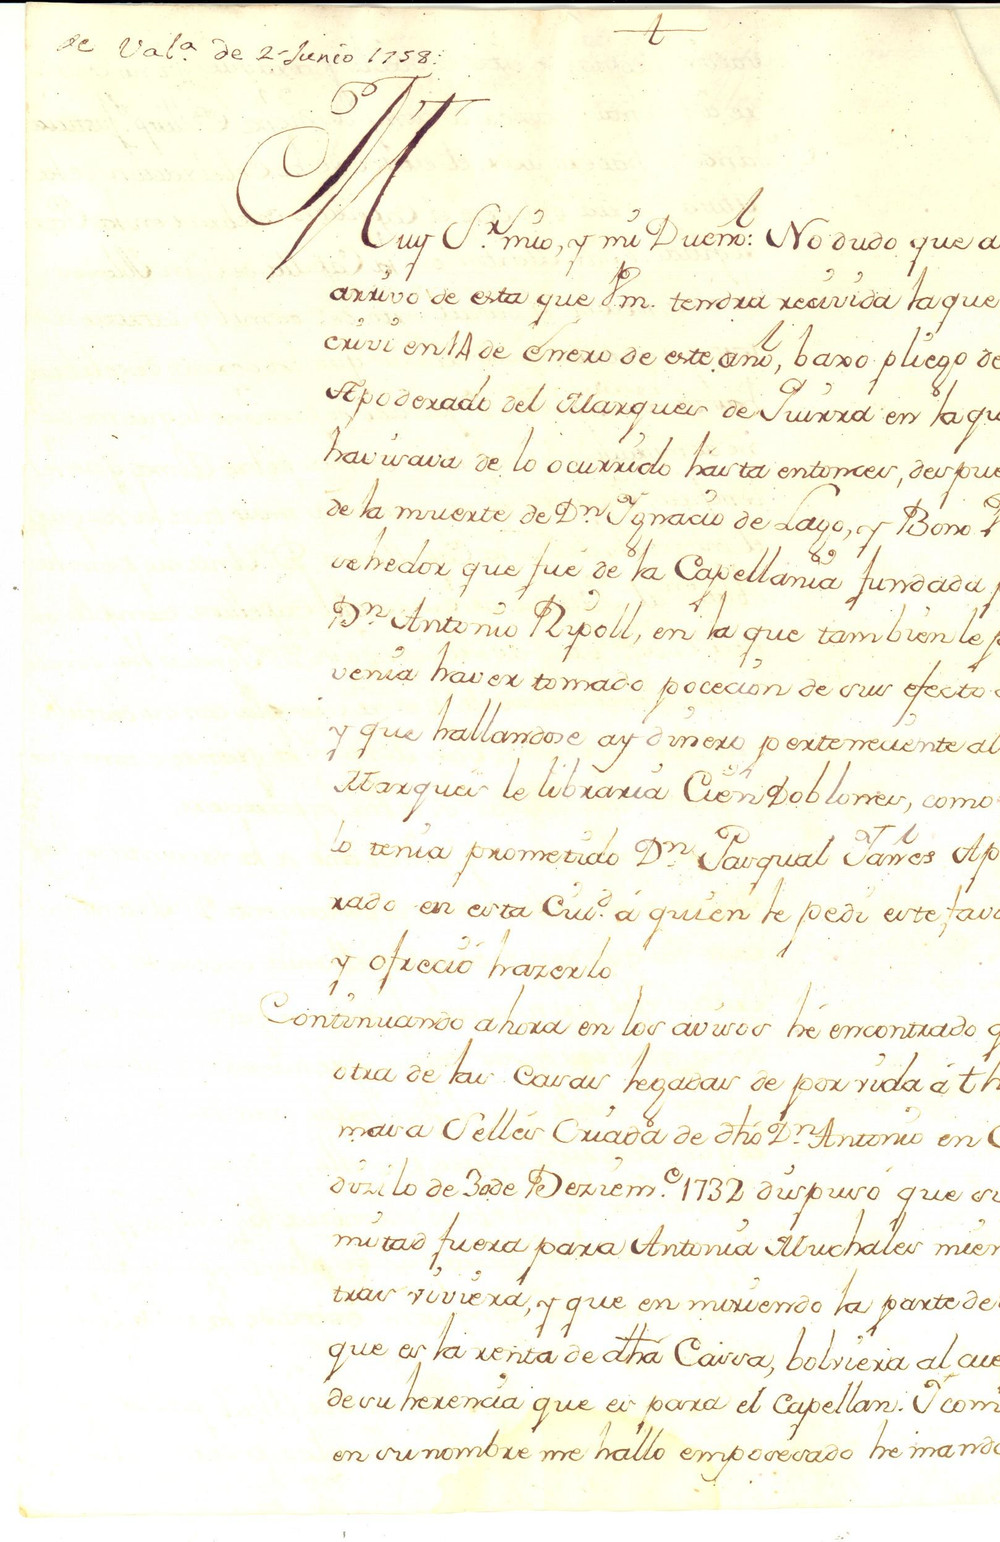 de Val.ª de 2 Junio 1758.
Muy S.r mio, y mi Dueño: No dudo que a
arrivo de esta que Vm. tendra recivida la que
crivi en 14 de Enero de este año, baxo pliego de
Apoderado del Marques de Quirra en la qu
havisava de lo ocurrido hasta entonces, despue
de la muerte de Dn. Ygnacio de Lago, y Bono P
sehedor que fué de la Capellania fundada p
Dn. Antonio Ripoll, en la que tambien le p
venia haver tomado pocecion de sus efecto
y que hallandose ay dinero perteneciente al
Marques le libraria Cien Doblones, como
lo tenia prometido Dn. Pasqual Tarres Ap
rado en esta Ciu.d á quien le pedi este favo
y ofreció hazerlo
Continuando ahora en los avisos hé encontrado q
otra de las Casas legadas de por vida á th
masa Sellés Criada de dho Dn. Antonio en C
dizilo de 30 de Deziem.e 1732 dispusó que su
mitad fuera para Antonia Muchales mien
tras viviera, y que en muriendo la parte de
que es la renta de dha Cassa, bolviera al cue
de su herencia que es para el Capellan. Y com
en su nombre me hallo emposesado he mando